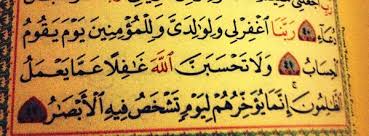 دُعَآءِ ٤٠ رَبَّنَا ٱغْفِرْ لِى وَلِوَٰلِدَىَّ وَلِلْمُؤْمِنِينَ يَوْمَ يَقُومُ
ٱلْحِسَابُ ٤١ وَلَا تَحْسَبَنَّ ٱللَّهَ غَٰفِلًا عَمَّا يَعْمَلُ
ٱلظَّٰلِمُونَ ۚ إِنَّمَا يُؤَخِّرُهُمْ لِيَوْمٍ تَشْخَصُ فِيهِ ٱلْأَبْصَٰرُ ٤٢